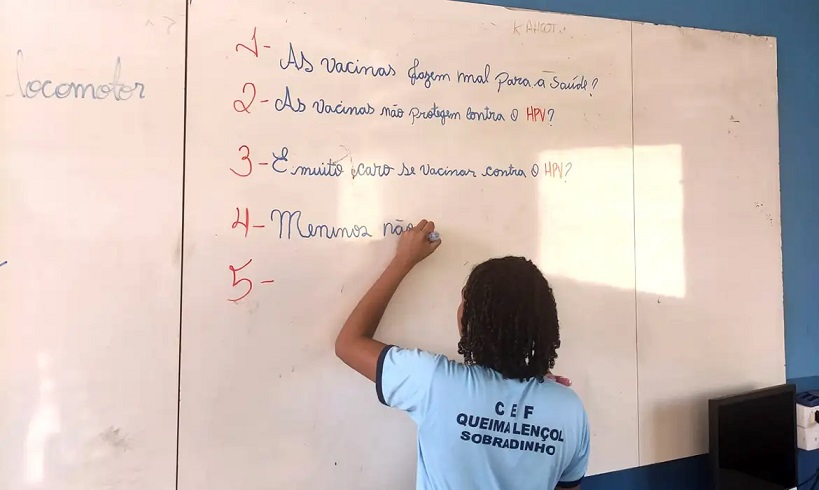 locomotor
1- As vacinas fazem mal para a saúde?
2- As vacinas não protegem contra o HPV?
3- E muito caro se vacinar contra o HPV?
4- Meninos não
5-
C E F
QUEIMA LENÇOL
SOBRADINHO